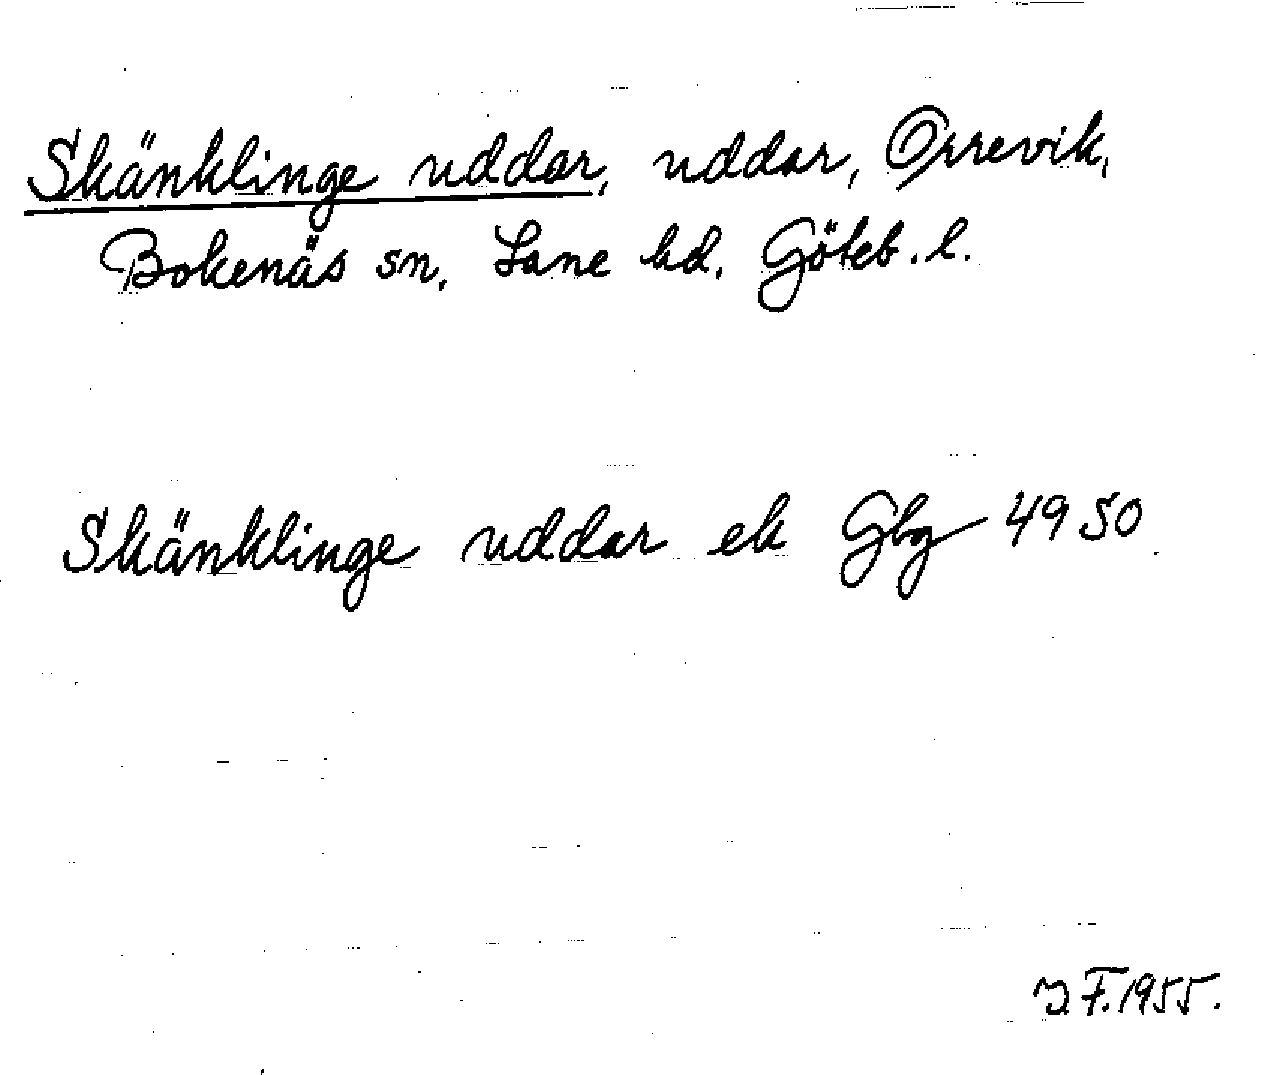 Skänklinge uddar, uddar, Orrevik,
Bokenäs sn, Lane hd, Göteb. l.
Skänklinge uddar ek Gbg 4950
J F. 1955.